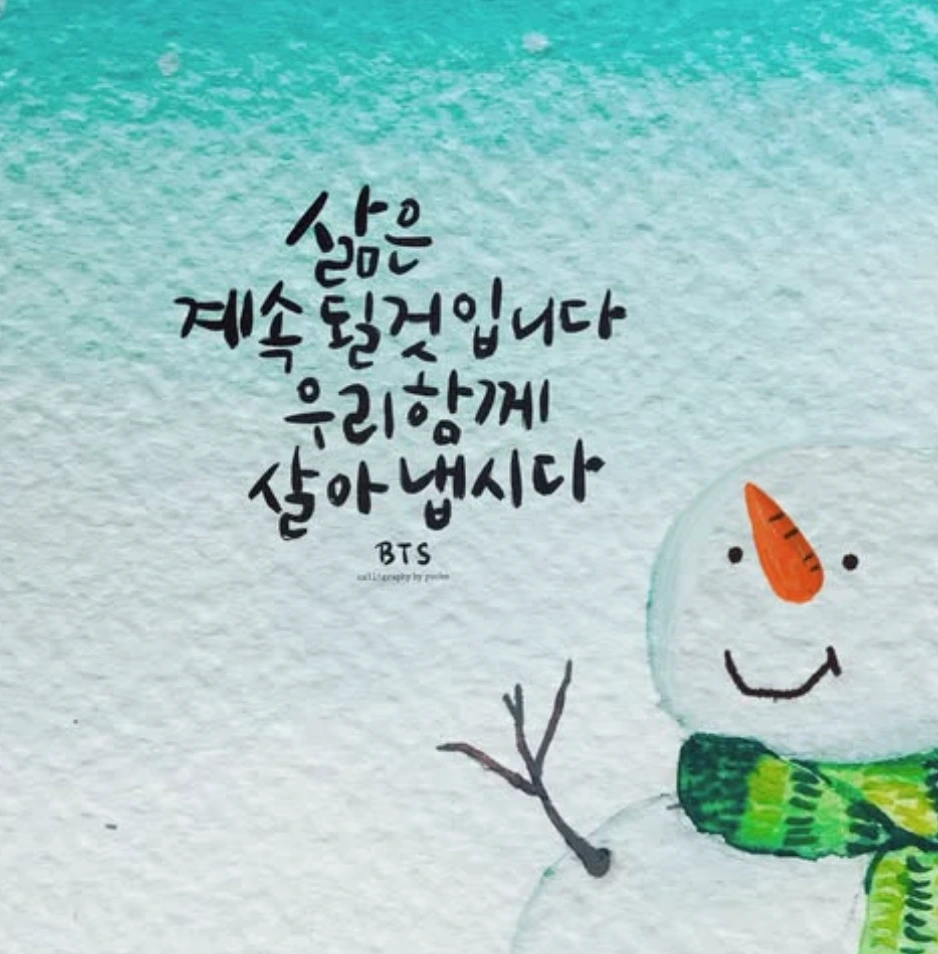 삶은
계속 될것입니다
우리함께
살아냅시다
BTS
calligraphy by